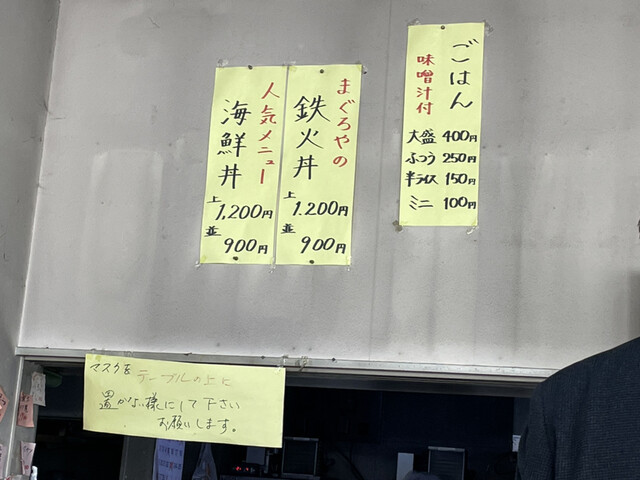 ごはん
味噌汁付
大盛 400円
ふつう 250円
半ライス 150円
ミニ 100円
まぐろやの
鉄火丼
上 1.200円
並 900円
人気メニュー
海鮮丼
上 1,200円
並 900円
マスクを テーブルの上に
置かない様にして下さい
お願いします。